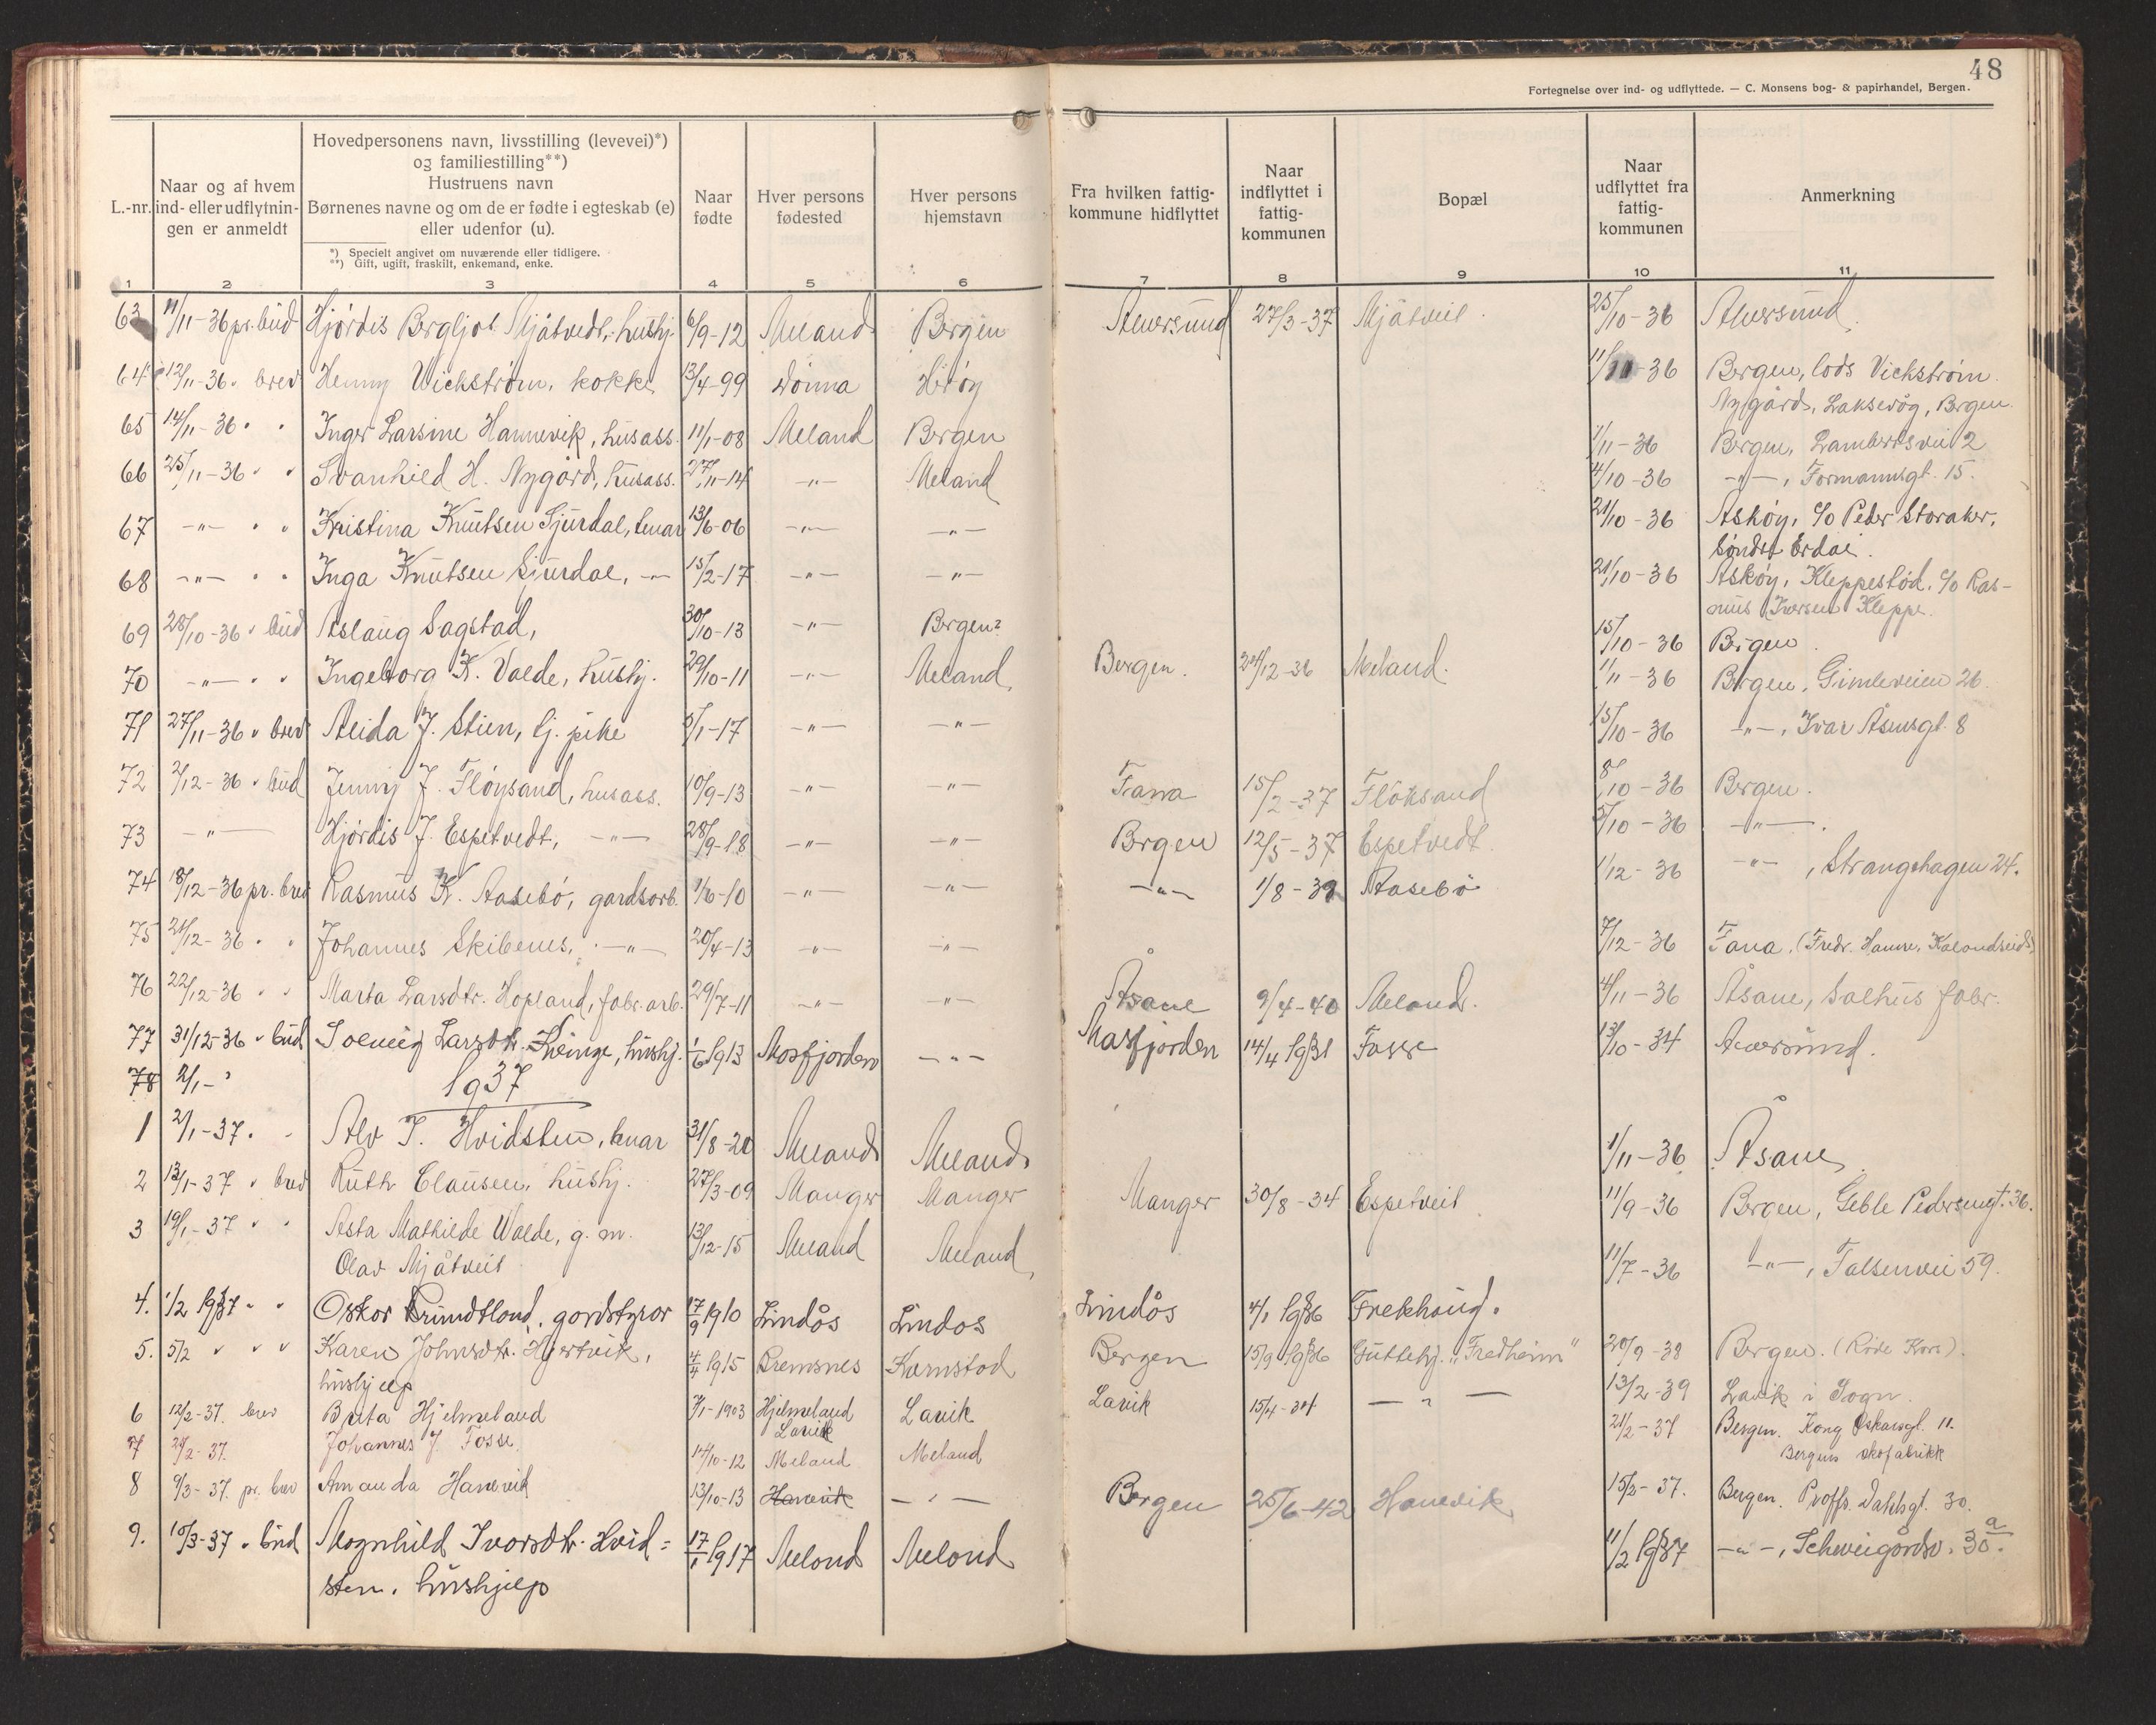 48
Fortegnelse over ind- og udflyttede. — C. Monsens bog- & papirhandel, Bergen.
L.-nr.
Naar og af hvem
ind- eller udflytnin-
gen er anmeldt
Hovedpersonens navn, livsstilling (levevei)*)
og familiestilling**)
Hustruens navn
Børnenes navne og om de er fødte i egteskab (e)
eller udenfor (u).
*) Specielt angivet om nuværende eller tidligere.
**) Gift, ugift, fraskilt, enkemand, enke.
Naar
fødte
Hver persons
fødested
Hver persons
hjemstavn
Fra hvilken fattig-
kommune hidflyttet
Naar
indflyttet i
fattig-
kommunen
Bopæl
Naar
udflyttet fra
fattig-
kommunen
Anmerkning
1 2 3 4 5 6 7 8 9 10 11
63 11/11-36 pr. bud Hjørdis Bergljot Mjåtvedt, hushj. 6/9-12 Meland Bergen Alversund 27/3-37 Mjåtveit 25/10-36 Alversund
64 12/11-36 " brev Henny Vickstrøm, kokke 13/4-99 Dønna Herøy 11/10-36 Bergen, Lods Vickstrøm
Nygård, Laksevåg, Bergen.
65 14/11-36 " " Inger Larsine Hannevik, husass. 11/1-08 Meland Bergen 1/11-36 Bergen, Lambertsvei 2
66 25/11-36 " " Svanhild H. Nygård, husass. 27/11-14 -"- Meland 4/10-36 -"-, Formannsgt. 15.
67 -"- " " Kristina Knutsen Sjurdal, tenar 13/6-06 -"- -"- 21/10-36 Askøy, c/o Peder Storaker,
Søndre Erdal.
68 -"- " " Inga Knutsen Sjurdal, -"- 15/2-17 -"- -"- 21/10-36 Askøy, Kleppestød, c/o Ras-
mus Iversen Kleppe.
69 28/10-36 " bud Aslaug Sagstad, 30/10-13 -"- Bergen? 15/10-36 Bergen
70 -"- " " Ingeborg K. Valde, hushj. 29/10-11 -"- Meland Bergen. 24/12-36 Meland. 1/11-36 Bergen, Gimleveien 26.
71 27/11-36 " brev Alida J. Stien, tj. pike 3/1-17 -"- -"- 15/10-36 -"-, Ivar Åsensgt. 8
72 2/12-36 " bud Jenny J. Fløysand, husass. 10/9-13 -"- -"- Fana 15/2-37 Fløksand 8/10-36 Bergen.
73 -"- Hjørdis J. Espetvedt, -"- 28/9-18 -"- -"- Bergen 12/5-37 Espetvedt. 5/10-36 -"-.
74 18/12-36 pr. brev Rasmus K. Aasebø, gardsarb. 1/6-10 -"- -"- -"- 1/8-38 Aasebø 1/12-36 -"-, Strangehagen 24.
75 21/12-36 " " Johannes Skibenes, -"- 20/4-13 -"- -"- 7/12-36 Fana, (Fredr. Hamre, Kalandseid)
76 22/12-36 " " Marta Larsdtr. Hopland, fabr.arb. 29/7-11 -"- -"- Åsane 9/4-40 Meland. 4/11-36 Åsane, Salhus fabr.
77 31/12-36 " bud Solveig Larsdtr. Kvinge, hushj. 1/6 1913 Masfjorden -"- Masfjorden 14/4 1931 Fosse 13/10-34 Alversund.
78 2/1- "
1937
1 2/1-37 " " Alv T. Hvidsten, tenar 31/8-20 Meland Meland 1/11-36 Åsane
2 13/1-37 " brev Ruth Clausen, hushj. 27/3-09 Manger Manger Manger 30/8-34 Espetveit 11/9-36 Bergen, Geble Pedersensgt. 36.
3 19/1-37 " " Asta Mathilde Valde, g. m.
Olav Mjåtveit 13/12-15 Meland Meland 11/7-36 -"-, Falsensvei 59.
4. 1/2 1937 " " Oskar Brundtland, gardstyrar 17/9 1910 Lindås Lindås Lindås 4/1 1936 Frekhaug.
5. 5/2 " " " Karen Johnsdtr. Hjertvik,
hushjelp 4/4 1915 Bremsnes Kr.mstad Bergen 15/9 1936 Guttehj. "Fredheim" 20/9-38 Bergen. (Røde Kors).
6 12/2-37. brev Brita Hjelmeland 7/1-1903 Hjelmeland
Lavik Lavik Lavik 15/4-34 — " — 13/2-39 Lavik i Sogn.
7 24/2-37. Johannes J. Fosse 14/10-12 Meland Meland 21/2-37 Bergen. Kong Oskarsgt. 11.
Bergens skofabrikk
8 9/3-37. pr. brev Amanda Hanevik 13/10-13 Hanevik — " — Bergen 25/6-42 Hanevik 15/2-37. Bergen. Proffs. Dahlsgt. 30.
9. 10/3-37 " bud Magnhild Ivarsdtr. Hvid=
sten, hushjelp 17/1 1917 Meland Meland 11/2 1937 -"-, Schweigårdsv. 30 a.